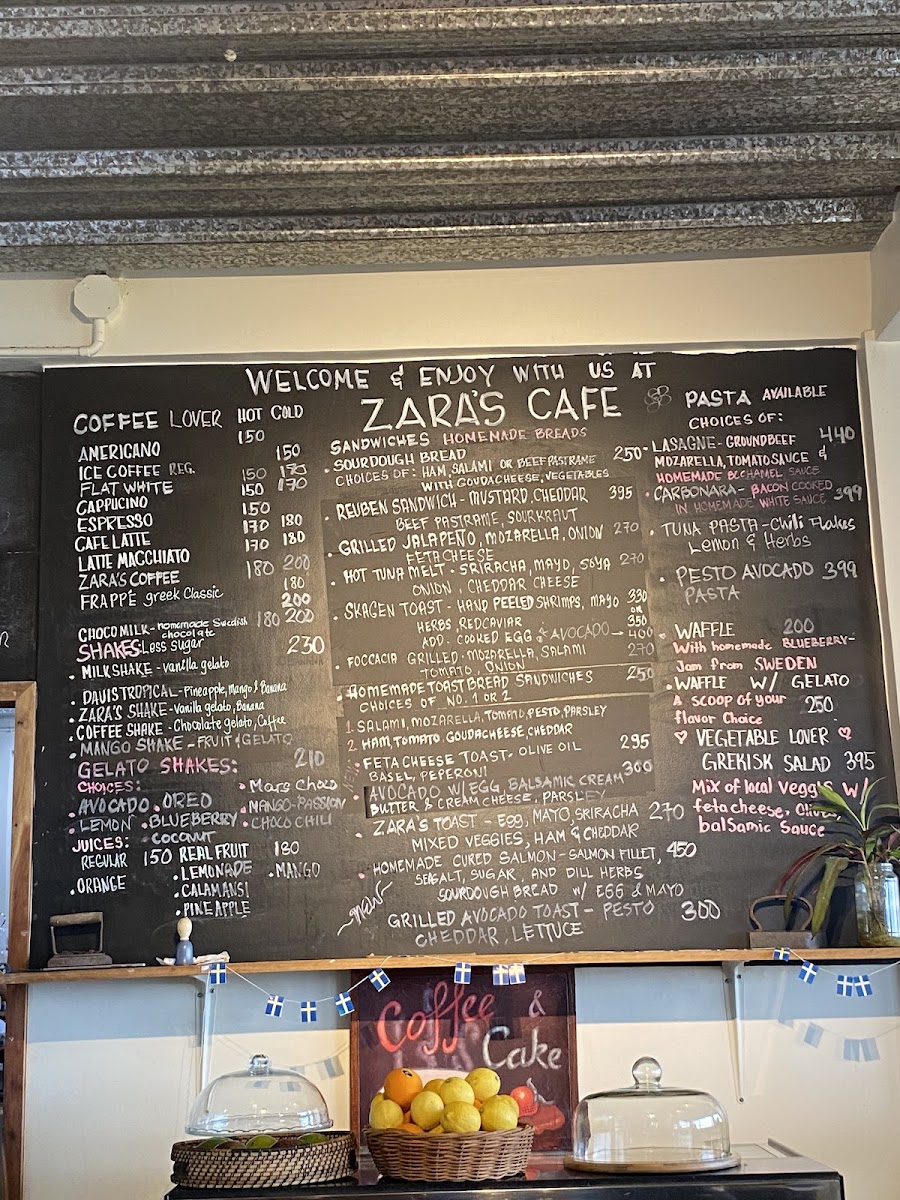 WELCOME & ENJOY WITH US AT
ZARA'S CAFE
COFFEE LOVER HOT COLD
150
AMERICANO 150
ICE COFFEE REG. 150 170
FLAT WHITE 150 170
CAPPUCINO 150
ESPRESSO 170 180
CAFE LATTE 170 180
LATTE MACCHIATO 180 200
ZARA'S COFFEE 180
FRAPPÉ greek Classic 200
CHOCO MILK - Homemade Swedish 180 200
chocolate
SHAKES: Less Sugar 230
• MILKSHAKE - Vanilla gelato
• DAVIS TROPICAL - Pineapple, Mango & Banana
• ZARA'S SHAKE - Vanilla gelato, Banana
COFFEE SHAKE - Chocolate gelato, Coffee
• MANGO SHAKE - FRUIT & GELATO
GELATO SHAKES: 210
CHOICES: • Mars Choco
• AVOCADO • OREO • MANGO-PASSION
• LEMON • BLUEBERRY • CHOCO CHILI
JUICES: • COCONUT
REGULAR 150 REAL FRUIT 180
• ORANGE • LEMONADE • MANGO
• CALAMANSI
• PINEAPPLE
SANDWICHES HOMEMADE BREADS
• SOURDOUGH BREAD 250-
CHOICES OF: HAM, SALAMI OR BEEF PASTRAME
WITH GOUDACHEESE, VEGETABLES
• REUBEN SANDWICH - MUSTARD, CHEDDAR 395
BEEF PASTRAME, SOURKRAUT
• GRILLED JALAPEÑO, MOZARELLA, ONION 270
FETA CHEESE
• HOT TUNA MELT - SRIRACHA, MAYO, SOYA 270
ONION, CHEDDAR CHEESE
• SKAGEN TOAST - HAND PEELED SHRIMPS, MAYO 330
OR
HERBS, RED CAVIAR 350
ADD: COOKED EGG & AVOCADO - 400
• FOCCACIA GRILLED - MOZARELLA, SALAMI 270
TOMATO, ONION
• HOMEMADE TOAST BREAD SANDWICHES 250
CHOICES OF NO. 1 OR 2
1. SALAMI, MOZARELLA, TOMATO, PESTO, PARSLEY
2 HAM, TOMATO, GOUDACHEESE, CHEDDAR
• FETA CHEESE TOAST - OLIVE OIL 295
BASEL, PEPERONI
NEW
• AVOCADO W/ EGG, BALSAMIC CREAM 300
BUTTER & CREAM CHEESE, PARSLEY
• ZARA'S TOAST - EGG, MAYO, SRIRACHA 270
MIXED VEGGIES, HAM & CHEDDAR
• HOMEMADE CURED SALMON - SALMON FILLET, 450
SEASALT, SUGAR, AND DILL HERBS
SOURDOUGH BREAD W/ EGG & MAYO
new
GRILLED AVOCADO TOAST - PESTO 300
CHEDDAR, LETTUCE
PASTA AVAILABLE
CHOICES OF:
• LASAGNE - GROUNDBEEF 440
MOZARELLA, TOMATO SAUCE &
HOMEMADE BECHAMEL SAUCE
• CARBONARA - BACON COOKED 399
IN HOMEMADE WHITE SAUCE
• TUNA PASTA - Chili Flakes
Lemon & Herbs
• PESTO AVOCADO 399
PASTA
• WAFFLE 200
With homemade BLUEBERRY-
Jam from SWEDEN
• WAFFLE W/ GELATO
A scoop of your 250
flavor Choice
VEGETABLE LOVER
GREKISK SALAD 395
Mix of local Veggies W/
feta cheese,
balSamic Sauce
Coffee &
Cake